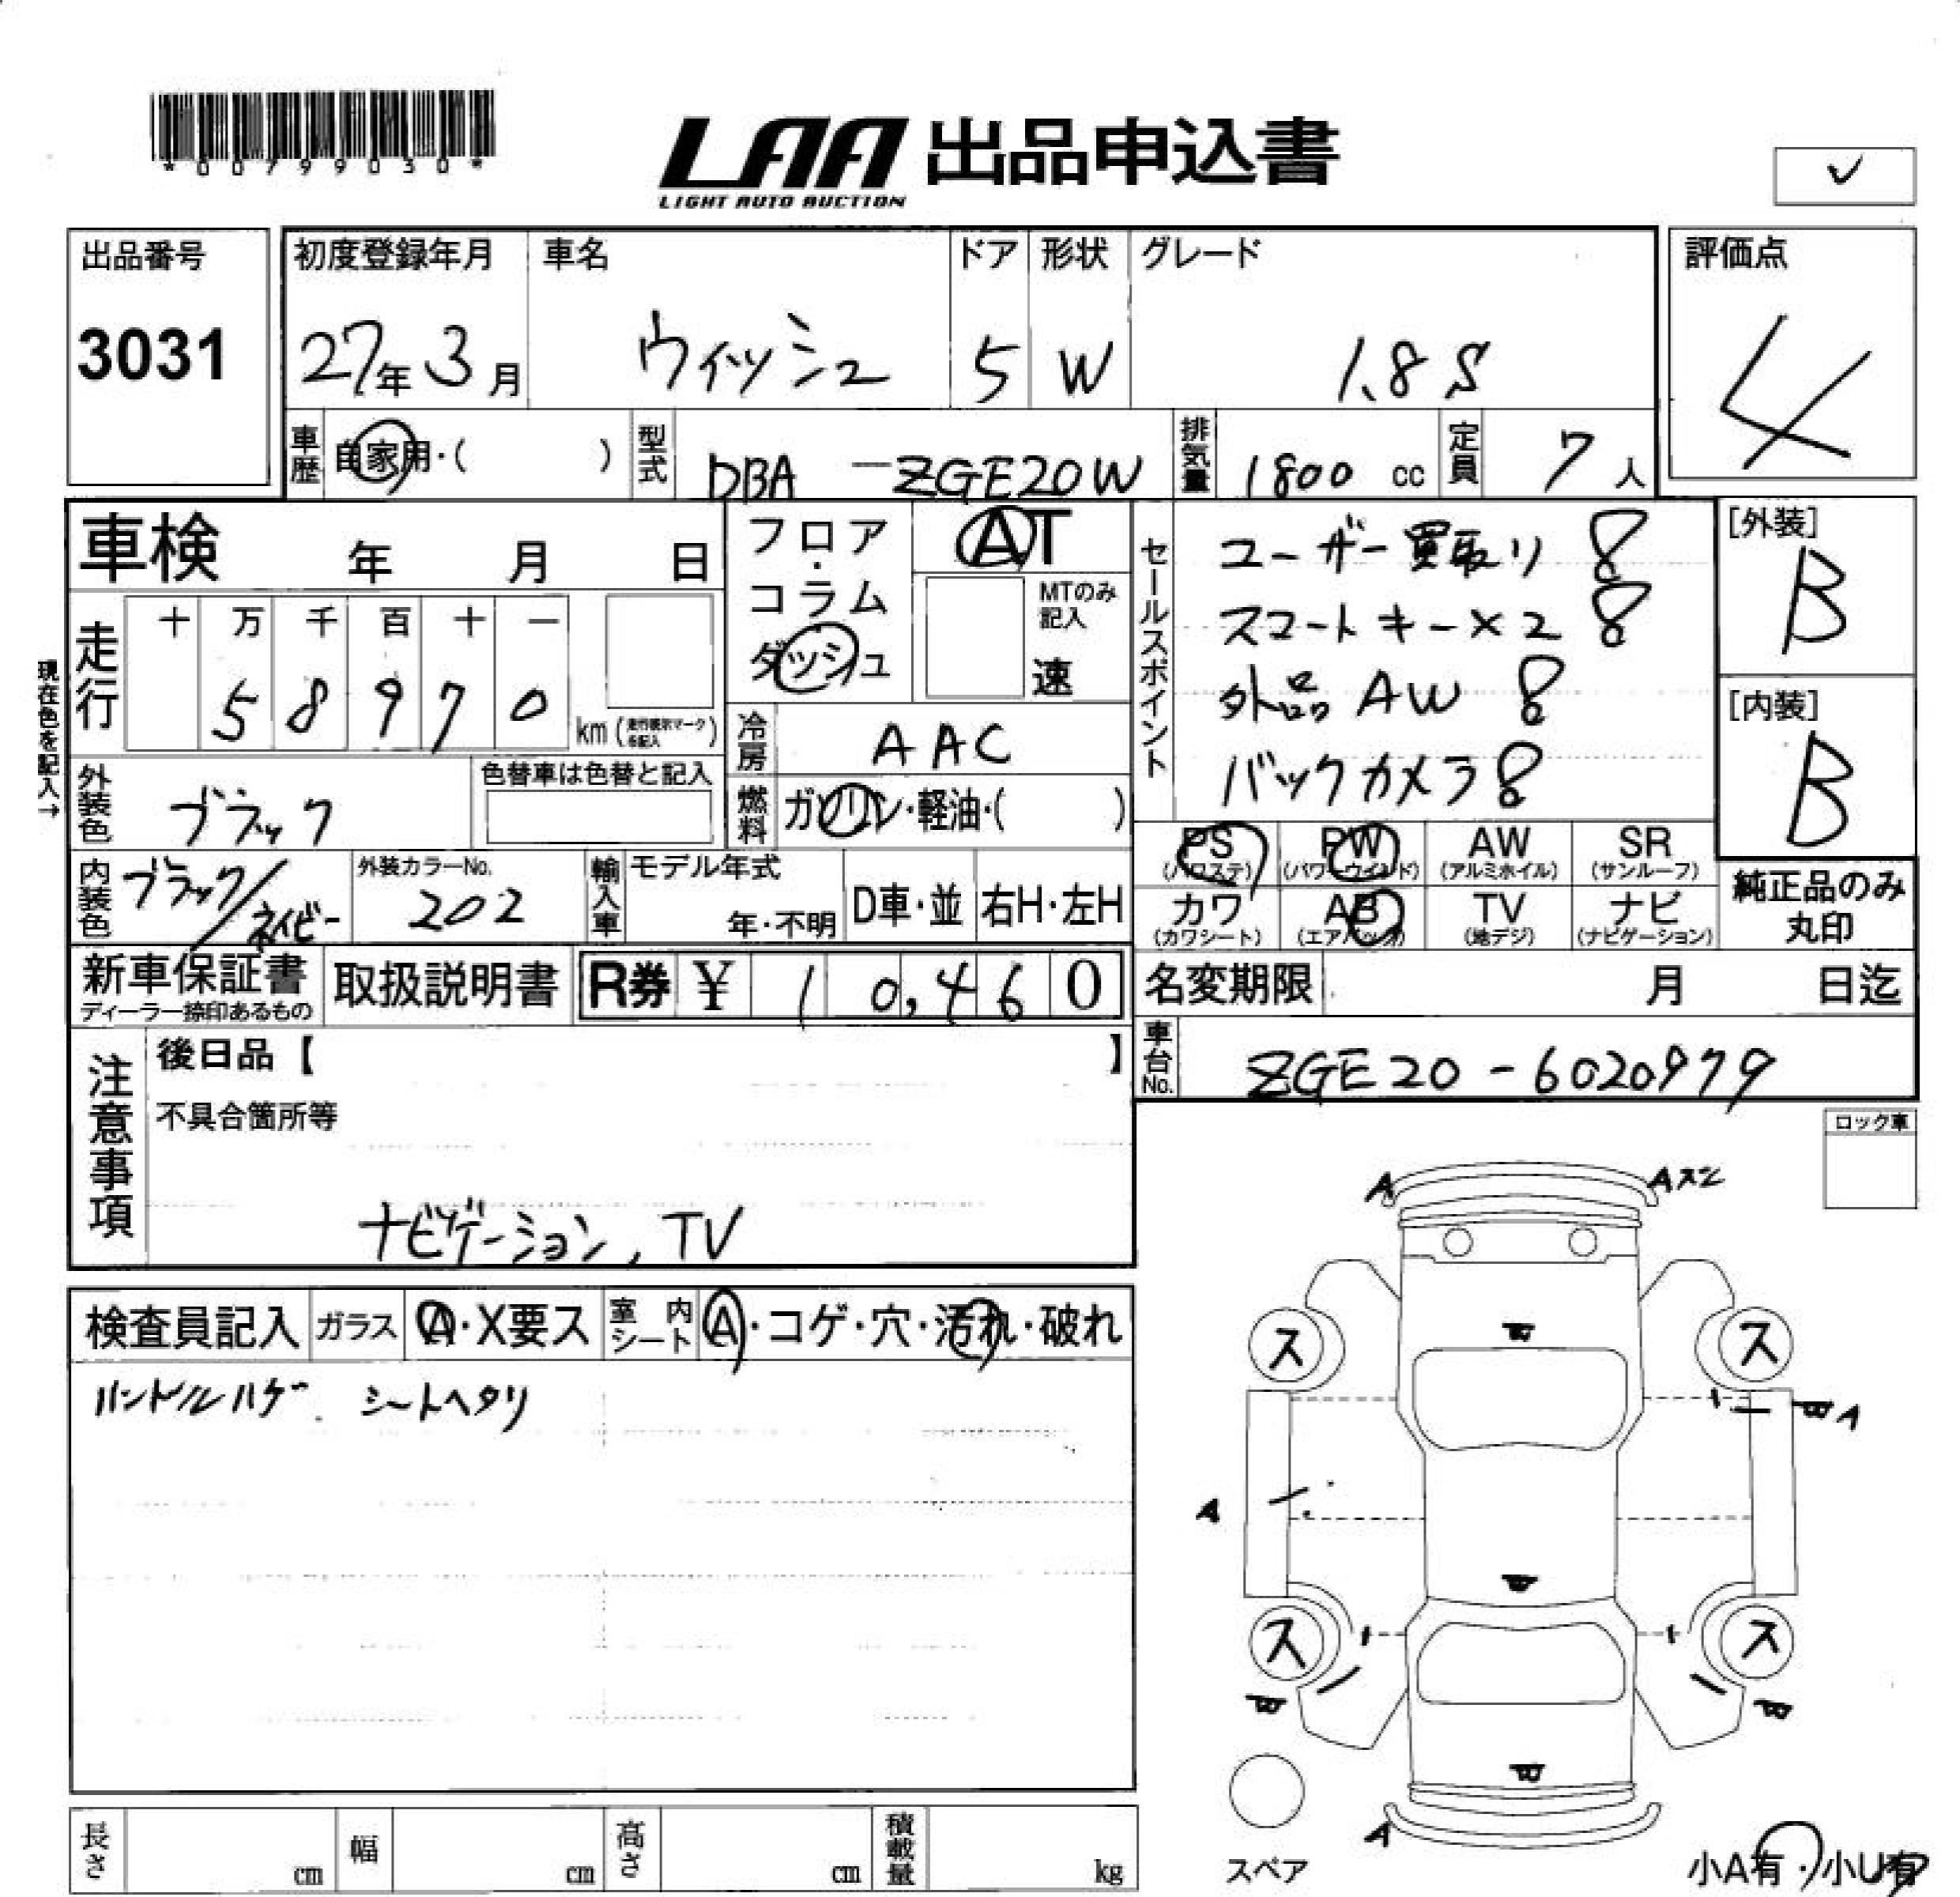 *00799030*
LAA 出品申込書
LIGHT AUTO AUCTION
✓
出品番号
3031
初度登録年月 車名 ドア 形状 グレード
27年 3月 ウィッシュ 5 W 1.8S
評価点
4
車歴 自家用・( ) 型式 DBA-ZGE20W 排気量 1800 cc 定員 7人
車検 年 月 日
フロア・コラム・ダッシュ
AT
MTのみ記入
速
セールスポイント
ユーザー買取り
スマートキー×2
外品AW
バックカメラ
[外装]
B
[内装]
B
現在色を記入→
走行 十 万 千 百 十 一
58970 km (走行表示マークを記入)
冷房 AAC
燃料 ガソリン・軽油・( )
外装色 ブラック
色替車は色替と記入
内装色 ブラック/ネイビー
外装カラーNo.
202
輸入車 モデル年式
年・不明 D車・並 右H・左H
PS PW AW SR
(パワステ) (パワーウインド) (アルミホイル) (サンルーフ)
カワ AB TV ナビ
(カワシート) (エアバッグ) (地デジ) (ナビゲーション)
純正品のみ
丸印
新車保証書
ディーラー捺印あるもの
取扱説明書 R券 ¥ 10,460
名変期限 月 日迄
車台No. ZGE20-6020979
注意事項
後日品【 】
不具合箇所等
ナビゲーション, TV
ロック車
検査員記入 ガラス A・X要ス 室内シート A・コゲ・穴・汚れ・破れ
ハンドルハゲ. シートヘタリ
A Aスレ
ス ス
A
A
ス ス
A
スペア
小A有・小U有
長さ cm 幅 cm 高さ cm 積載量 kg